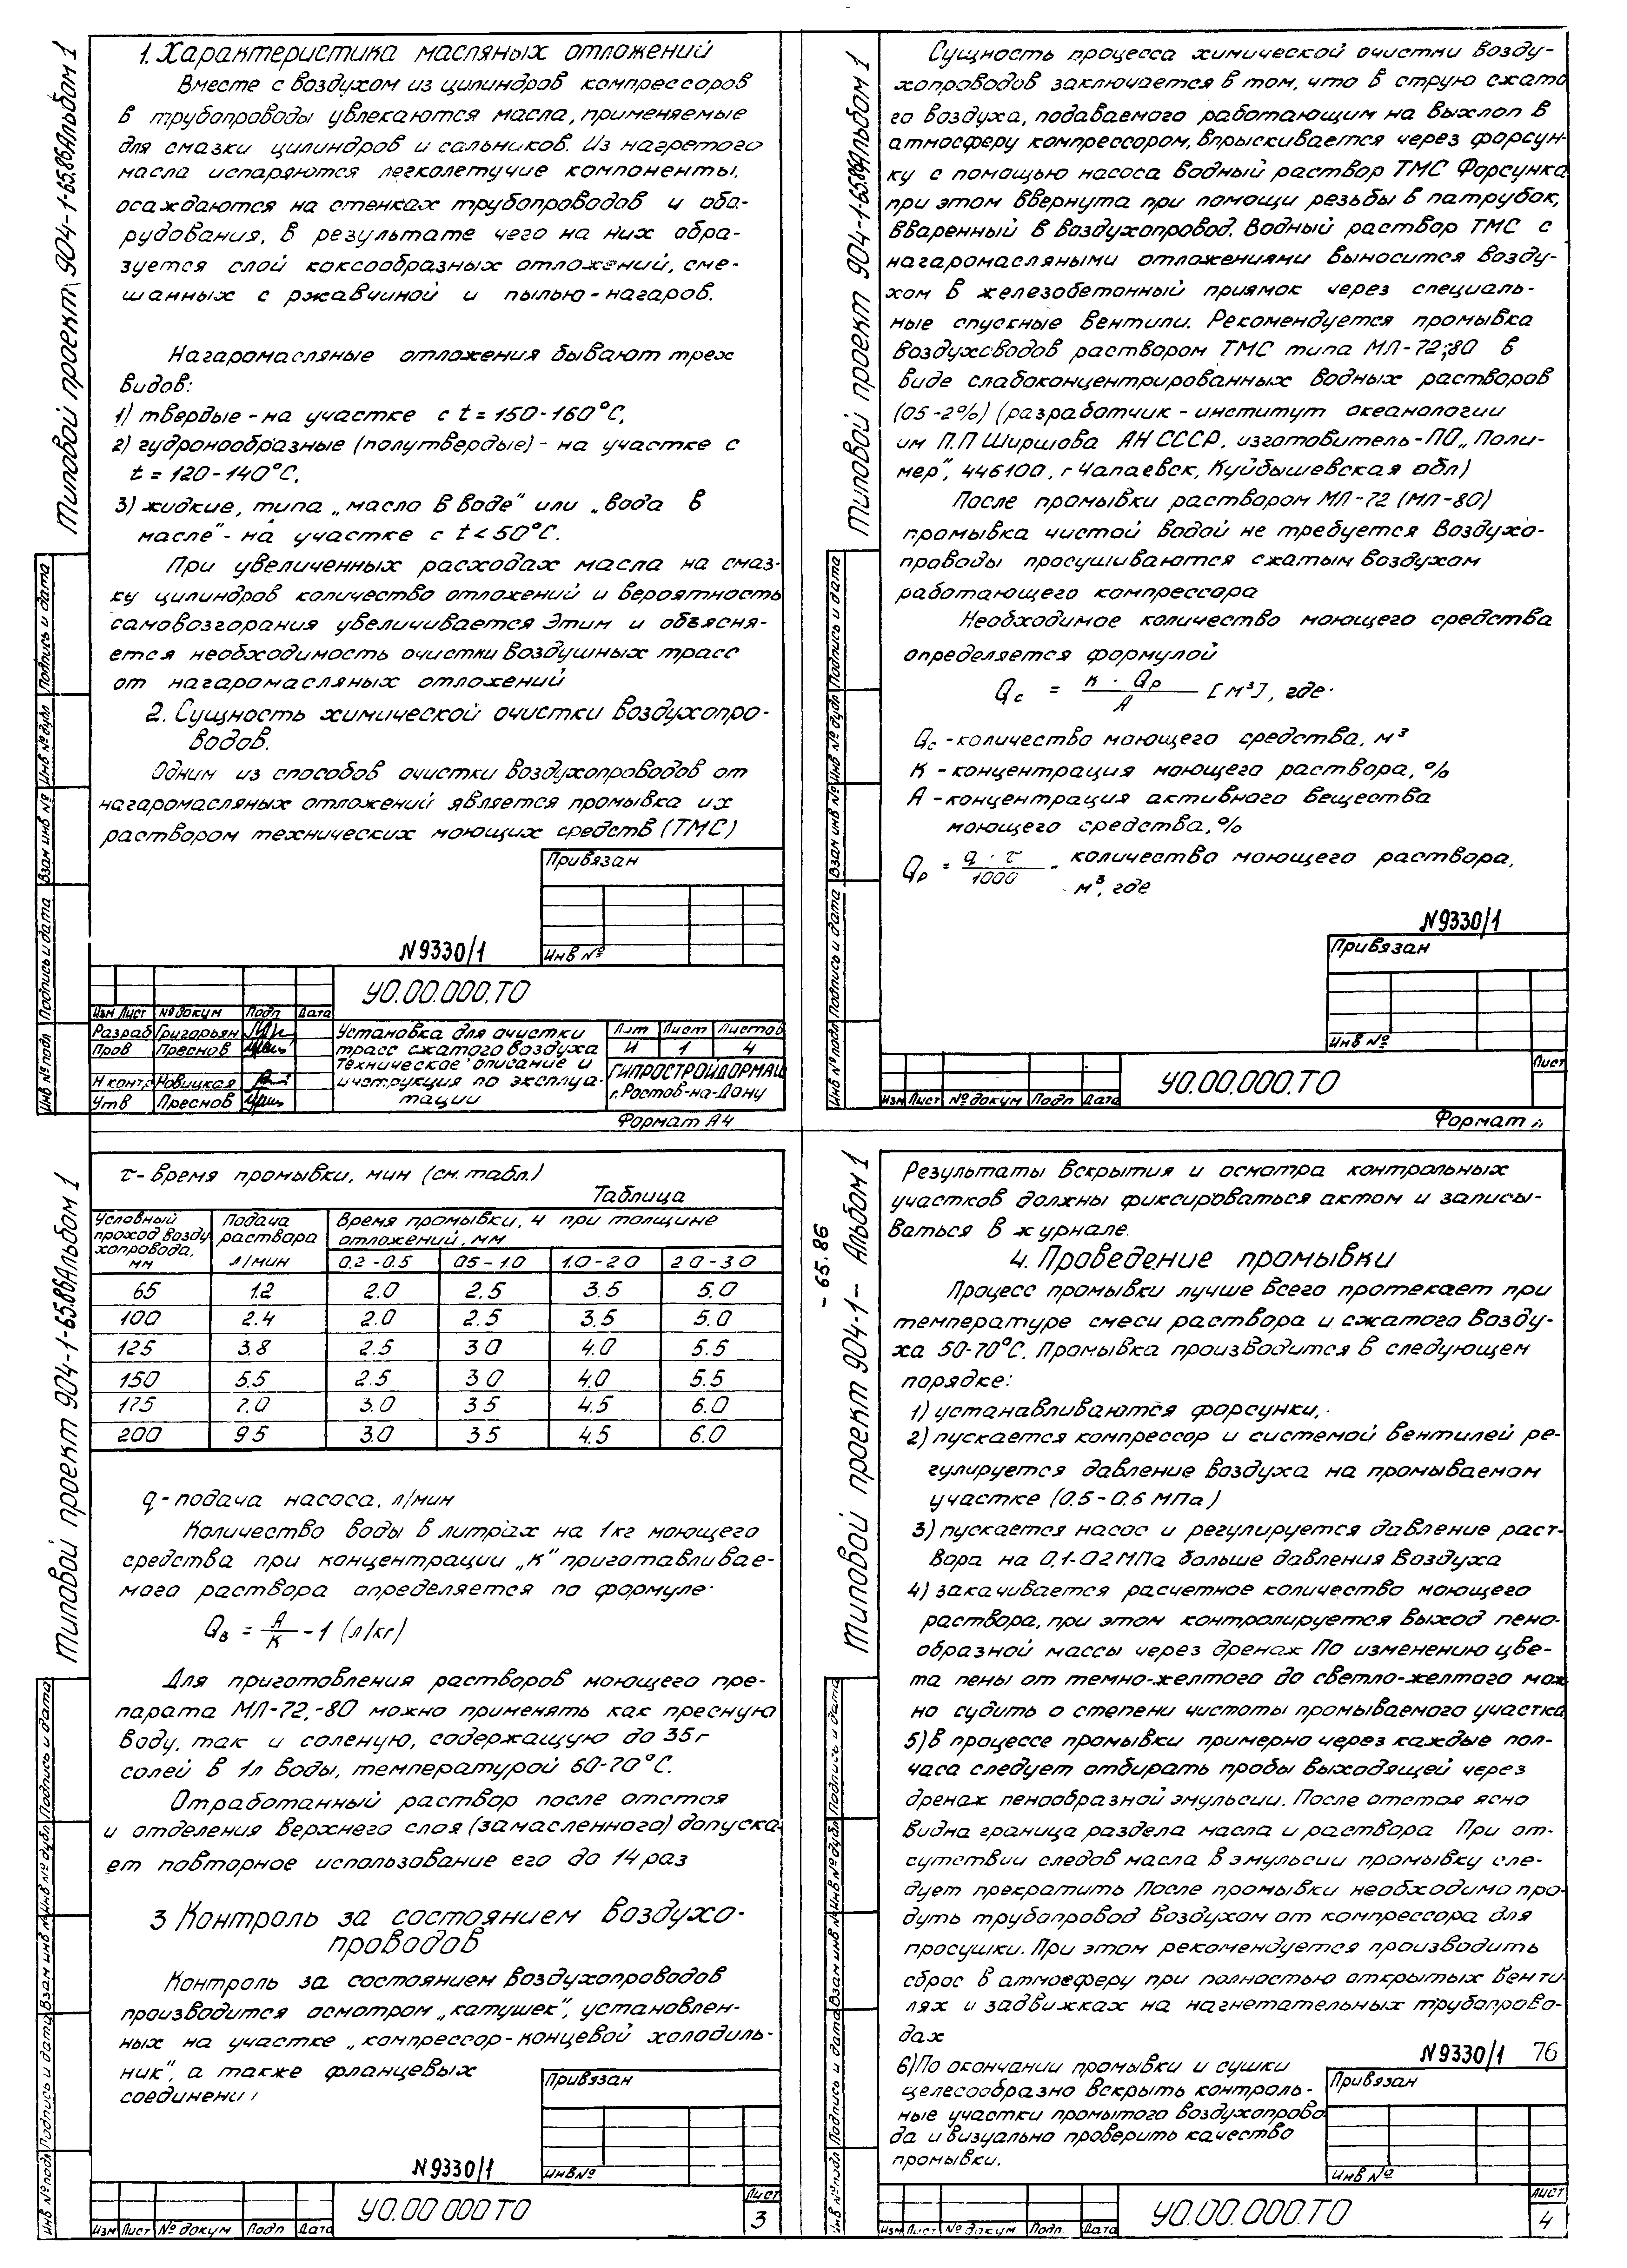 Типовой проект 904-1-65.86 Альбом 1
1. Характеристика масляных отложений
Вместе с воздухом из цилиндров компрессоров
в трубопроводы увлекаются масла, применяемые
для смазки цилиндров и сальников. Из нагретого
масла испаряются легколетучие компоненты,
осаждаются на стенках трубопроводов и обо-
рудования, в результате чего на них обра-
зуется слой коксообразных отложений, сме-
шанных с ржавчиной и пылью-нагаров.
Нагаромасляные отложения бывают трех
видов:
1) твердые - на участке с t = 150-160°С,
2) гудронообразные (полутвердые) - на участке с
t = 120-140°С,
3) жидкие, типа „масло в воде" или „вода в
масле" - на участке с t < 50°С.
При увеличенных расходах масла на смаз-
ку цилиндров количество отложений и вероятность
самовозгорания увеличивается Этим и объясня-
ется необходимость очистки воздушных трасс
от нагаромасляных отложений
2. Сущность химической очистки воздухопро-
водов.
Одним из способов очистки воздухопроводов от
нагаромасляных отложений является промывка их
раствором технических моющих средств (ТМС)
Привязан
Инв №
N9330/1
УО.00.000.ТО
Изм Лист № докум Подп Дата
Разраб Григорьян
Пров Преснов
Н контр Новицкая
Утв Преснов
Установка для очистки
трасс сжатого воздуха
Техническое описание и
инструкция по эксплуа-
тации
Лит Лист Листов
И 1 4
ГИПРОСТРОЙДОРМАШ
г. Ростов-на-Дону
Формат А4
Инв № подл Подпись и дата Взам инв № Инв № дубл Подпись и дата
Типовой проект 904-1-65.86 Альбом 1
Сущность процесса химической очистки возду-
хопроводов заключается в том, что в струю сжато
го воздуха, подаваемого работающим на выхлоп в
атмосферу компрессором, впрыскивается через форсун-
ку с помощью насоса водный раствор ТМС Форсунка
при этом ввернута при помощи резьбы в патрубок,
вваренный в воздухопровод. Водный раствор ТМС с
нагаромасляными отложениями выносится возду-
хом в железобетонный приямок через специаль-
ные спускные вентили. Рекомендуется промывка
воздуховодов раствором ТМС типа МЛ-72;80 в
виде слабоконцентрированных водных растворов
(05-2%) (разработчик - институт океанологии
им П.П Ширшова АН СССР, изготовитель-ПО „Поли-
мер", 446100, г Чапаевск, Куйбышевская обл)
После промывки раствором МЛ-72 (МЛ-80)
промывка чистой водой не требуется Воздухо-
проводы просушиваются сжатым воздухом
работающего компрессора
Необходимое количество моющего средства
определяется формулой
Qс = К · Qр / А [м³], где·
Qс - количество моющего средства, м³
К - концентрация моющего раствора, %
А - концентрация активного вещества
моющего средства, %
Qр = q · τ / 1000 - количество моющего раствора,
м³, где
N9330/1
Привязан
Инв №
УО.00.000.ТО
Лист
Изм Лист № докум Подп Дата
Формат
Инв № подл Подпись и дата Взам инв № Инв № дубл Подпись и дата
Типовой проект 904-1-65.86 Альбом 1
τ - время промывки, мин (см. табл.)
Таблица
Условный проход воздухопровода, мм Подача раствора л/мин Время промывки, ч при толщине отложений, мм
0.2-0.5 05-1.0 1.0-20 2.0-3.0
65 1.2 2.0 2.5 3.5 5.0
100 2.4 2.0 2.5 3.5 5.0
125 3.8 2.5 30 4.0 5.5
150 5.5 2.5 30 4.0 5.5
175 7.0 3.0 35 4.5 6.0
200 9.5 3.0 35 4.5 6.0
q - подача насоса, л/мин
Количество воды в литрах на 1кг моющего
средства при концентрации „К" приготавливае-
мого раствора определяется по формуле·
Qв = А / К - 1 (л/кг)
Для приготовления растворов моющего пре-
парата МЛ-72,-80 можно применять как пресную
воду, так и соленую, содержащую до 35г
солей в 1л воды, температурой 60-70°С.
Отработанный раствор после отстоя
и отделения верхнего слоя (замасленного) допуска-
ет повторное использование его до 14 раз
3 Контроль за состоянием воздухо-
проводов
Контроль за состоянием воздухопроводов
производится осмотром „катушек", установлен-
ных на участке „компрессор-концевой холодиль-
ник", а также фланцевых
соединени
Привязан
Инв №
N9330/1
УО.00 000 ТО
Лист
3
Изм Лист № докум Подп Дата
Инв № подл Подпись и дата Взам инв № Инв № дубл Подпись и дата
Типовой проект 904-1- Альбом 1
- 65.86
Результаты вскрытия и осмотра контрольных
участков должны фиксироваться актом и записы-
ваться в журнале.
4. Проведение промывки
Процесс промывки лучше всего протекает при
температуре смеси раствора и сжатого возду-
ха 50-70°С. Промывка производится в следующем
порядке:
1) устанавливаются форсунки,
2) пускается компрессор и системой вентилей ре-
гулируется давление воздуха на промываемом
участке (0.5-0.6 МПа)
3) пускается насос и регулируется давление раст-
вора на 0,1-02 МПа больше давления воздуха
4) закачивается расчетное количество моющего
раствора, при этом контролируется выход пено-
образной массы через дренаж По изменению цве-
та пены от темно-желтого до светло-желтого мож
но судить о степени чистоты промываемого участка
5) в процессе промывки примерно через каждые пол-
часа следует отбирать пробы выходящей через
дренаж пенообразной эмульсии. После отстоя ясно
видна граница раздела масла и раствора При от-
сутствии следов масла в эмульсии промывку сле-
дует прекратить После промывки необходимо про-
дуть трубопровод воздухом от компрессора для
просушки. При этом рекомендуется производить
сброс в атмосферу при полностью открытых венти-
лях и задвижках на нагнетательных трубопрово-
дах
6) По окончании промывки и сушки
целесообразно вскрыть контроль-
ные участки промытого воздухопрово
да и визуально проверить качество
промывки.
N9330/1 76
Привязан
Инв №
УО.00.000.ТО
Лист
4
Изм Лист № докум. Подп. Дата
Инв № подл Подпись и дата Взам инв № Инв № дубл Подпись и дата